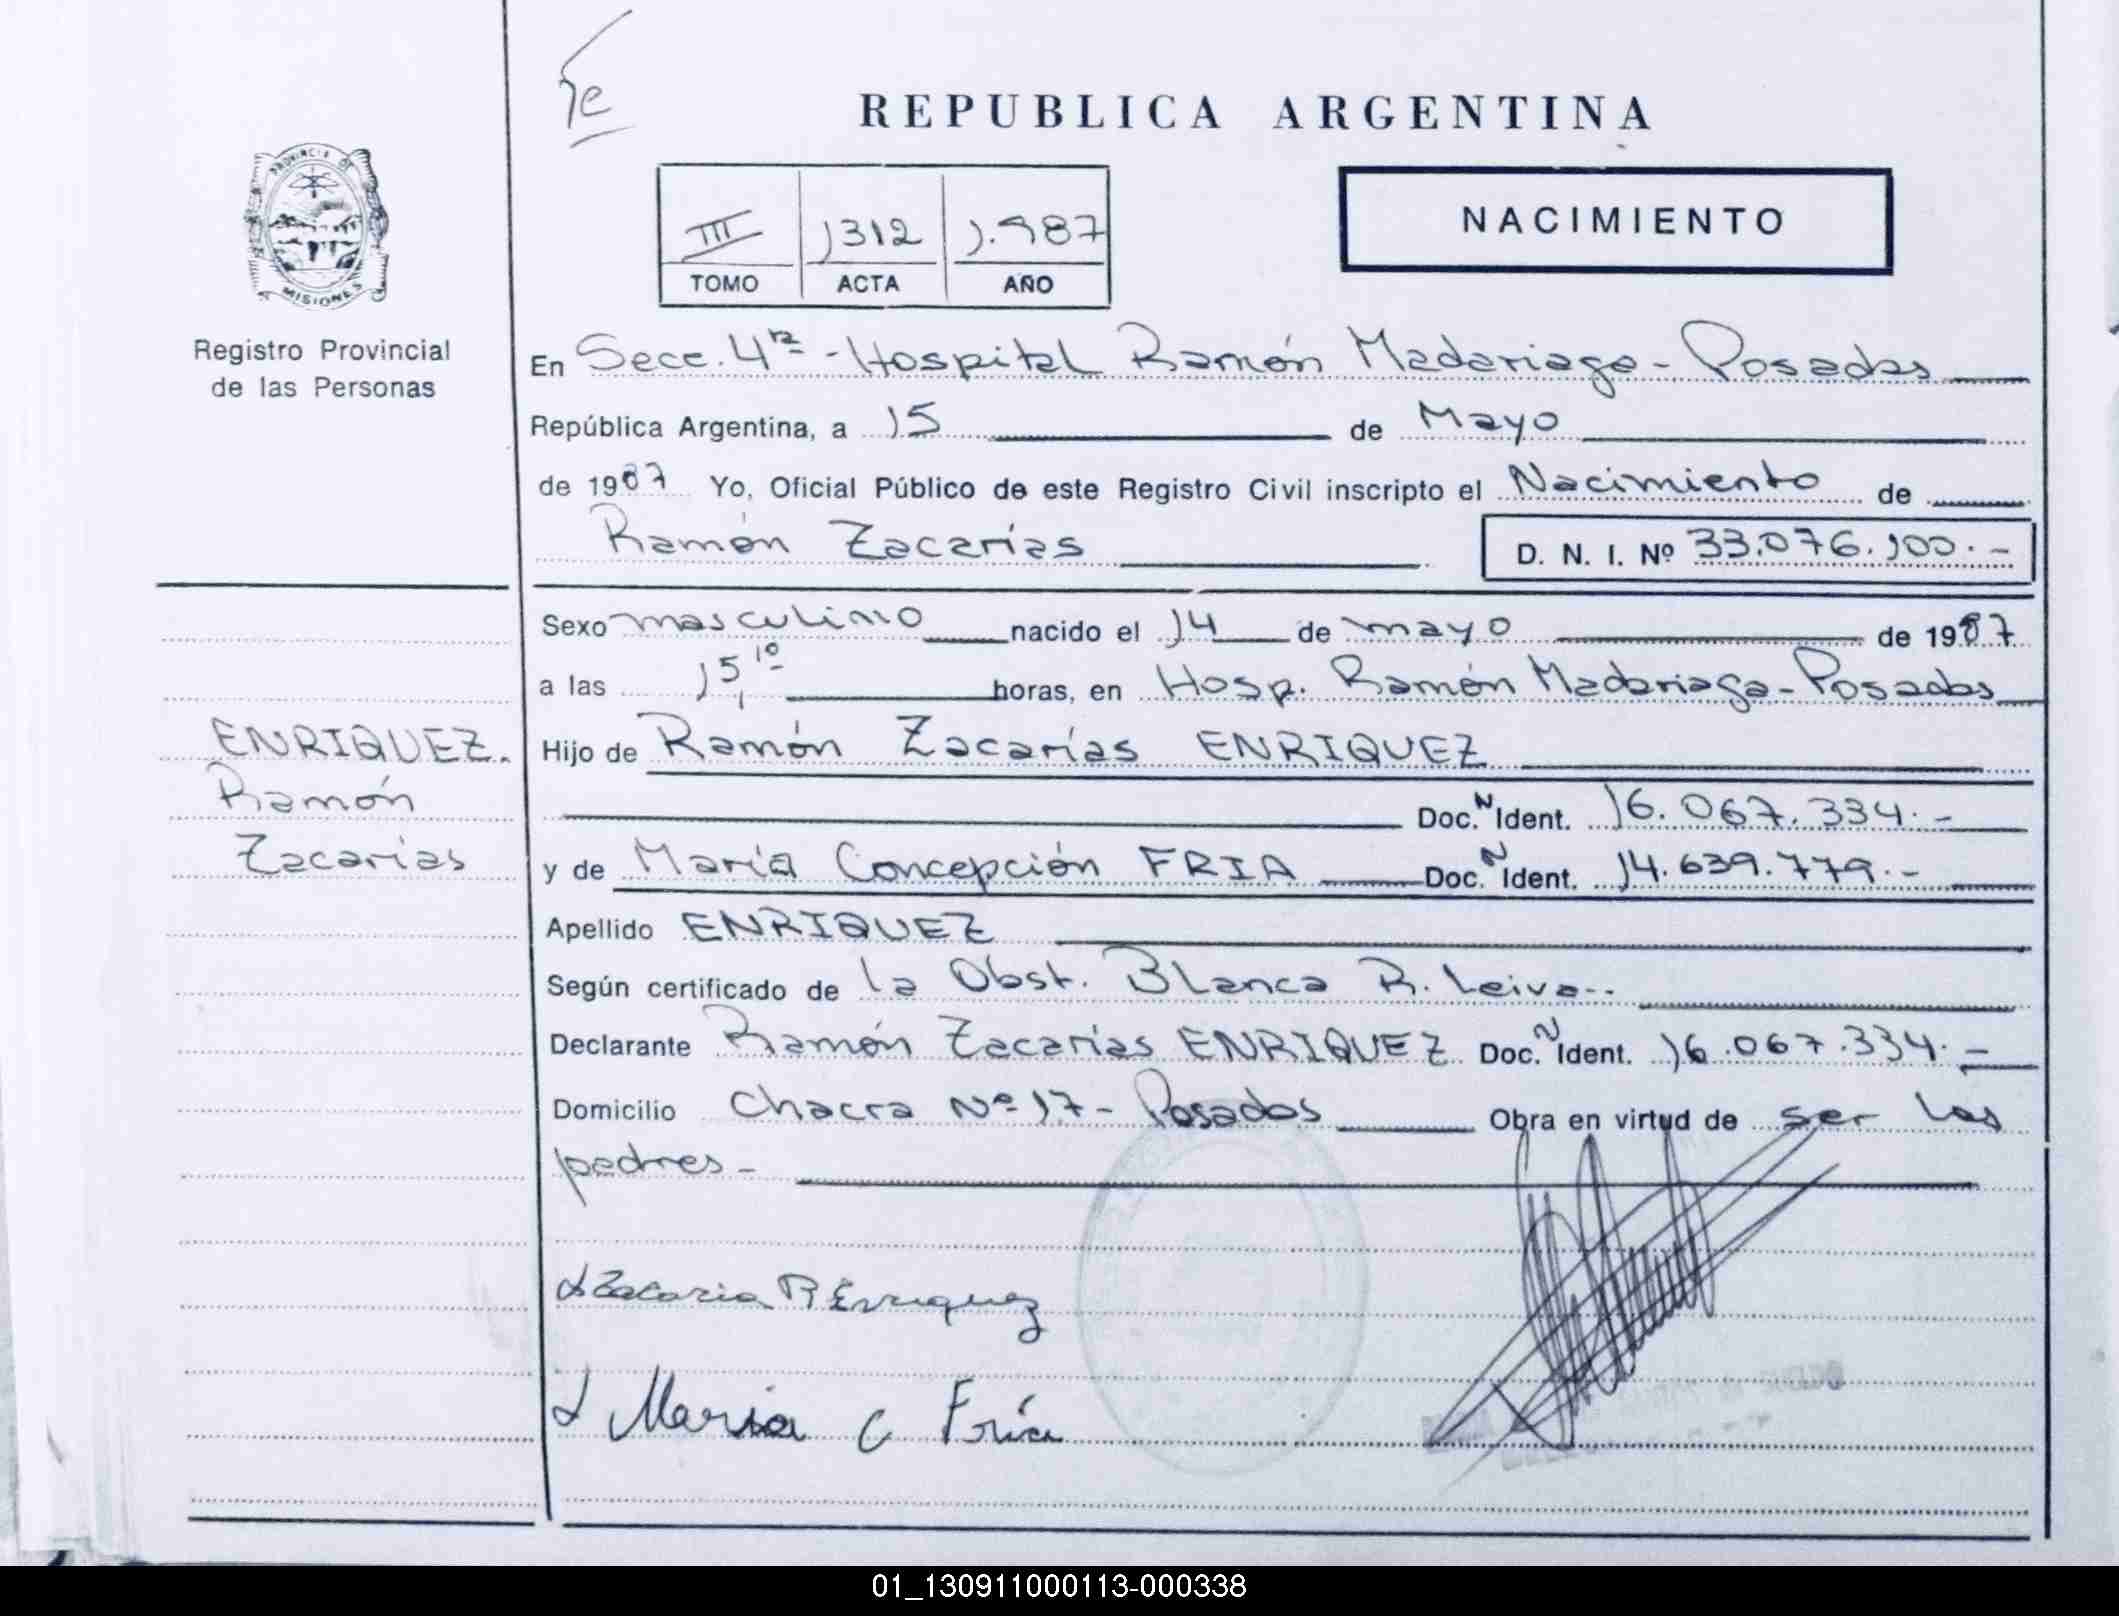 REPUBLICA ARGENTINA
PROVINCIA DE
MISIONES
Registro Provincial
de las Personas
III 1312 1.987
TOMO ACTA AÑO
NACIMIENTO
En Secc. 4ta - Hospital Ramón Madariaga - Posadas
República Argentina, a 15 de Mayo
de 1987 Yo, Oficial Público de este Registro Civil inscripto el Nacimiento de
Ramón Zacarías D. N. I. Nº 33.076.100.-
Sexo masculino nacido el 14 de mayo de 1987
a las 15,10 horas, en Hosp. Ramón Madariaga - Posadas
ENRIQUEZ.
Ramón
Zacarías
Hijo de Ramón Zacarías ENRIQUEZ
Doc. N Ident. 16.067.334.-
y de María Concepción FRIA Doc. N Ident. 14.639.779.-
Apellido ENRIQUEZ
Según certificado de la Obst. Blanca R. Leiva..
Declarante Ramón Zacarías ENRIQUEZ Doc. N Ident. 16.067.334.-
Domicilio Chacra Nº 17 - Posadas Obra en virtud de ser los
padres -
Zacaria R Enriquez
Maria C Fría
01_130911000113-000338